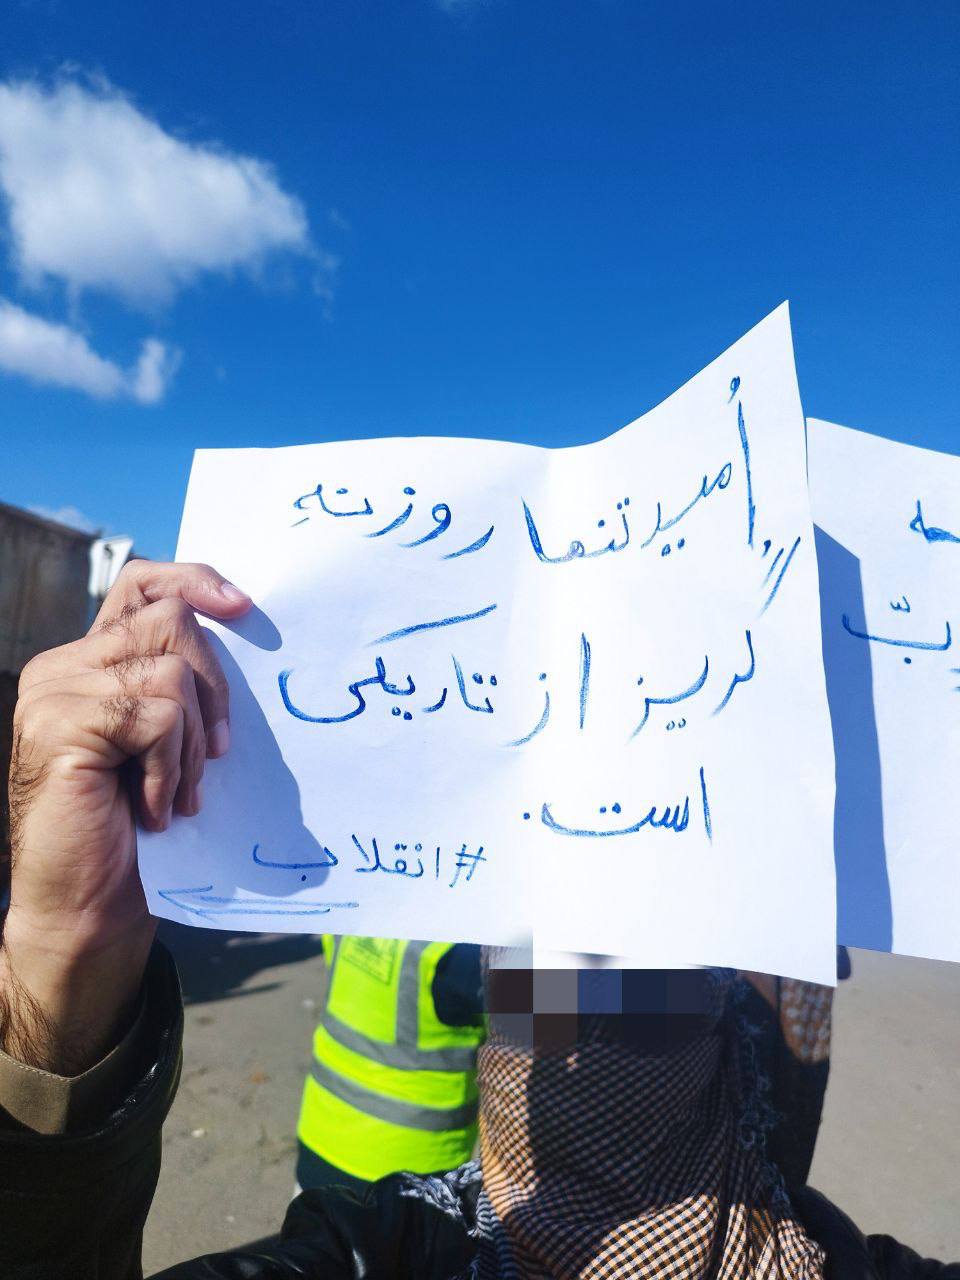 اُمید تنها روزنهِ
گریز از تاریکی
است.
#انقلاب